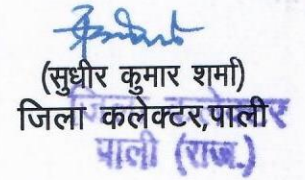 (सुधीर कुमार शर्मा)
जिला कलेक्टर,पाली
जिला कलेक्टर
पाली (राज.)